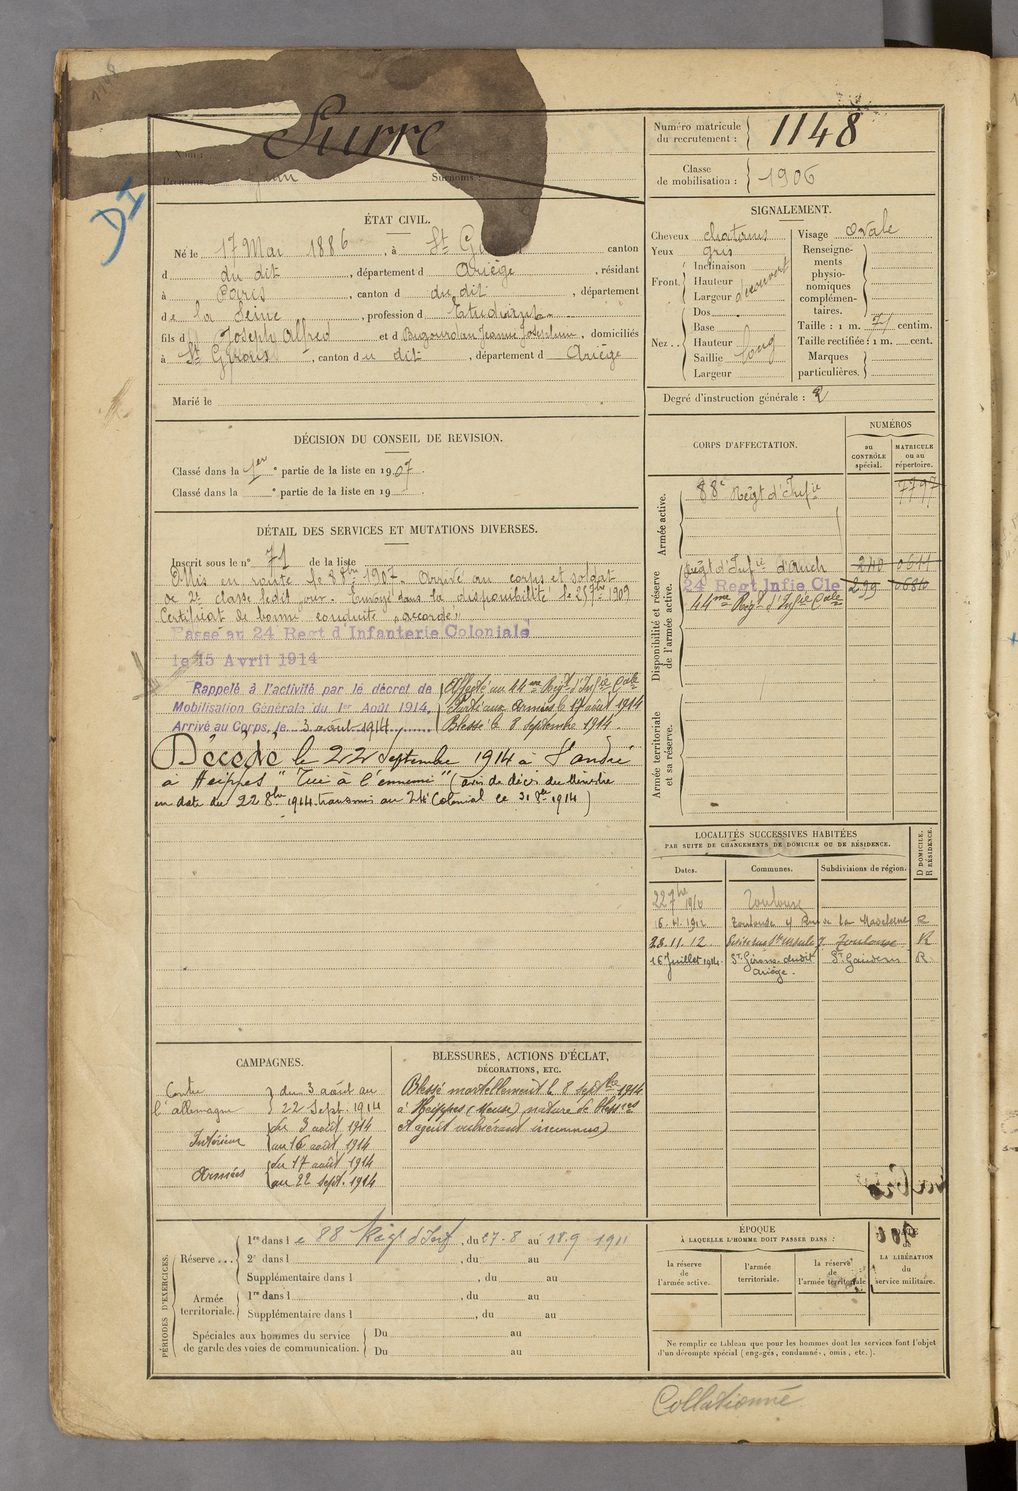 1148
Nom :
Surre
Prénoms : Jean Surnoms :
D I
Numéro matricule
du recrutement : 1148
Classe
de mobilisation : 1906
ÉTAT CIVIL.
Né le 17 Mai 1886, à St Gi canton
d du dit, département d Ariège, résidant
à Paris, canton d du dit, département
de la Seine, profession d Etudiant
fils d Joseph Alfred et d Bugourdan Jeanne Joséphine, domiciliés
à St Girons, canton du dit, département d Ariège
Marié le
SIGNALEMENT.
Cheveux chatains
Yeux gris
Front. Inclinaison
Hauteur
Largeur découvert
Nez .. Dos
Base
Hauteur
Saillie long
Largeur
Visage ovale
Renseigne-
ments
physio-
nomiques
complémen-
taires.
Taille : 1 m. 71 centim.
Taille rectifiée : 1 m. cent.
Marques
particulières.
Degré d'instruction générale : 2
DÉCISION DU CONSEIL DE REVISION.
Classé dans la 1er e partie de la liste en 1907.
Classé dans la e partie de la liste en 19
DÉTAIL DES SERVICES ET MUTATIONS DIVERSES.
Inscrit sous le n° 71 de la liste
Mis en route le 8 8bre 1907. Arrivé au corps et soldat
de 2e classe ledit jour. Envoyé dans la disponibilité le 25 7bre 1909
Certificat de bonne conduite "accordé"
Passé au 24 Regt d'Infanterie Coloniale
le 15 Avril 1914
Rappelé à l'activité par le décret de
Mobilisation Générale du 1er Août 1914.
Arrivé au Corps, le 3 août 1914
Affecté au 44me Régt d'Infie Cale
Parti aux Armées le 17 août 1914
Blessé le 8 septembre 1914.
Décédé le 22 septembre 1914 à St André
à Heippes "Tué à l'ennemi" (avis de décès du Ministre
en date du 22 8bre 1914 transmis au 24e Colonial le 31 8bre 1914)
CORPS D'AFFECTATION.
NUMÉROS
au
CONTRÔLE
spécial.
MATRICULE
ou au
répertoire.
Armée active.
88e Régt d'Infie 7797
Disponibilité et réserve
de l'armée active.
Régt d'Infie d'Auch 240 0611
24 Regt Infie Cle 299 06810
44me Régt d'Infie Cale
Armée territoriale
et sa réserve.
LOCALITÉS SUCCESSIVES HABITÉES
PAR SUITE DE CHANGEMENTS DE DOMICILE OU DE RÉSIDENCE.
Dates. Communes. Subdivisions de région. D DOMICILE. R RÉSIDENCE.
22 7bre 1910 Toulouse
16.4.1912 Toulouse 4 Rue de la Madeleine R
23.11.12. Toulouse R
16 Juillet 1914 St Girons dudit St Gaudens R
Ariège.
CAMPAGNES.
Contre du 3 août au
l'allemagne 22 Sept. 1914
Intérieur du 3 août 1914
au 16 août 1914
Armées du 17 août 1914
au 22 sept. 1914
BLESSURES, ACTIONS D'ÉCLAT,
DÉCORATIONS, ETC.
Blessé mortellement le 8 septbre 1914
à Heippes (Meuse) nature de blessures
et agent vulnérant inconnus)
PÉRIODES D'EXERCICES.
Réserve ... 1re dans le 88 Régt d'Inf, du 27-8 au 18 9 1911
2e dans l , du au
Supplémentaire dans l , du au
Armée
territoriale. 1re dans l , du au
Supplémentaire dans l , du au
Spéciales aux hommes du service
de garde des voies de communication. Du au
Du au
ÉPOQUE
À LAQUELLE L'HOMME DOIT PASSER DANS :
la réserve
de
l'armée active.
l'armée
territoriale.
la réserve
de
l'armée territoriale
DE
LA LIBÉRATION
du
service militaire.
Ne remplir ce tableau que pour les hommes dont les services font l'objet
d'un décompte spécial (engagés, condamnés, omis, etc.).
Collationné